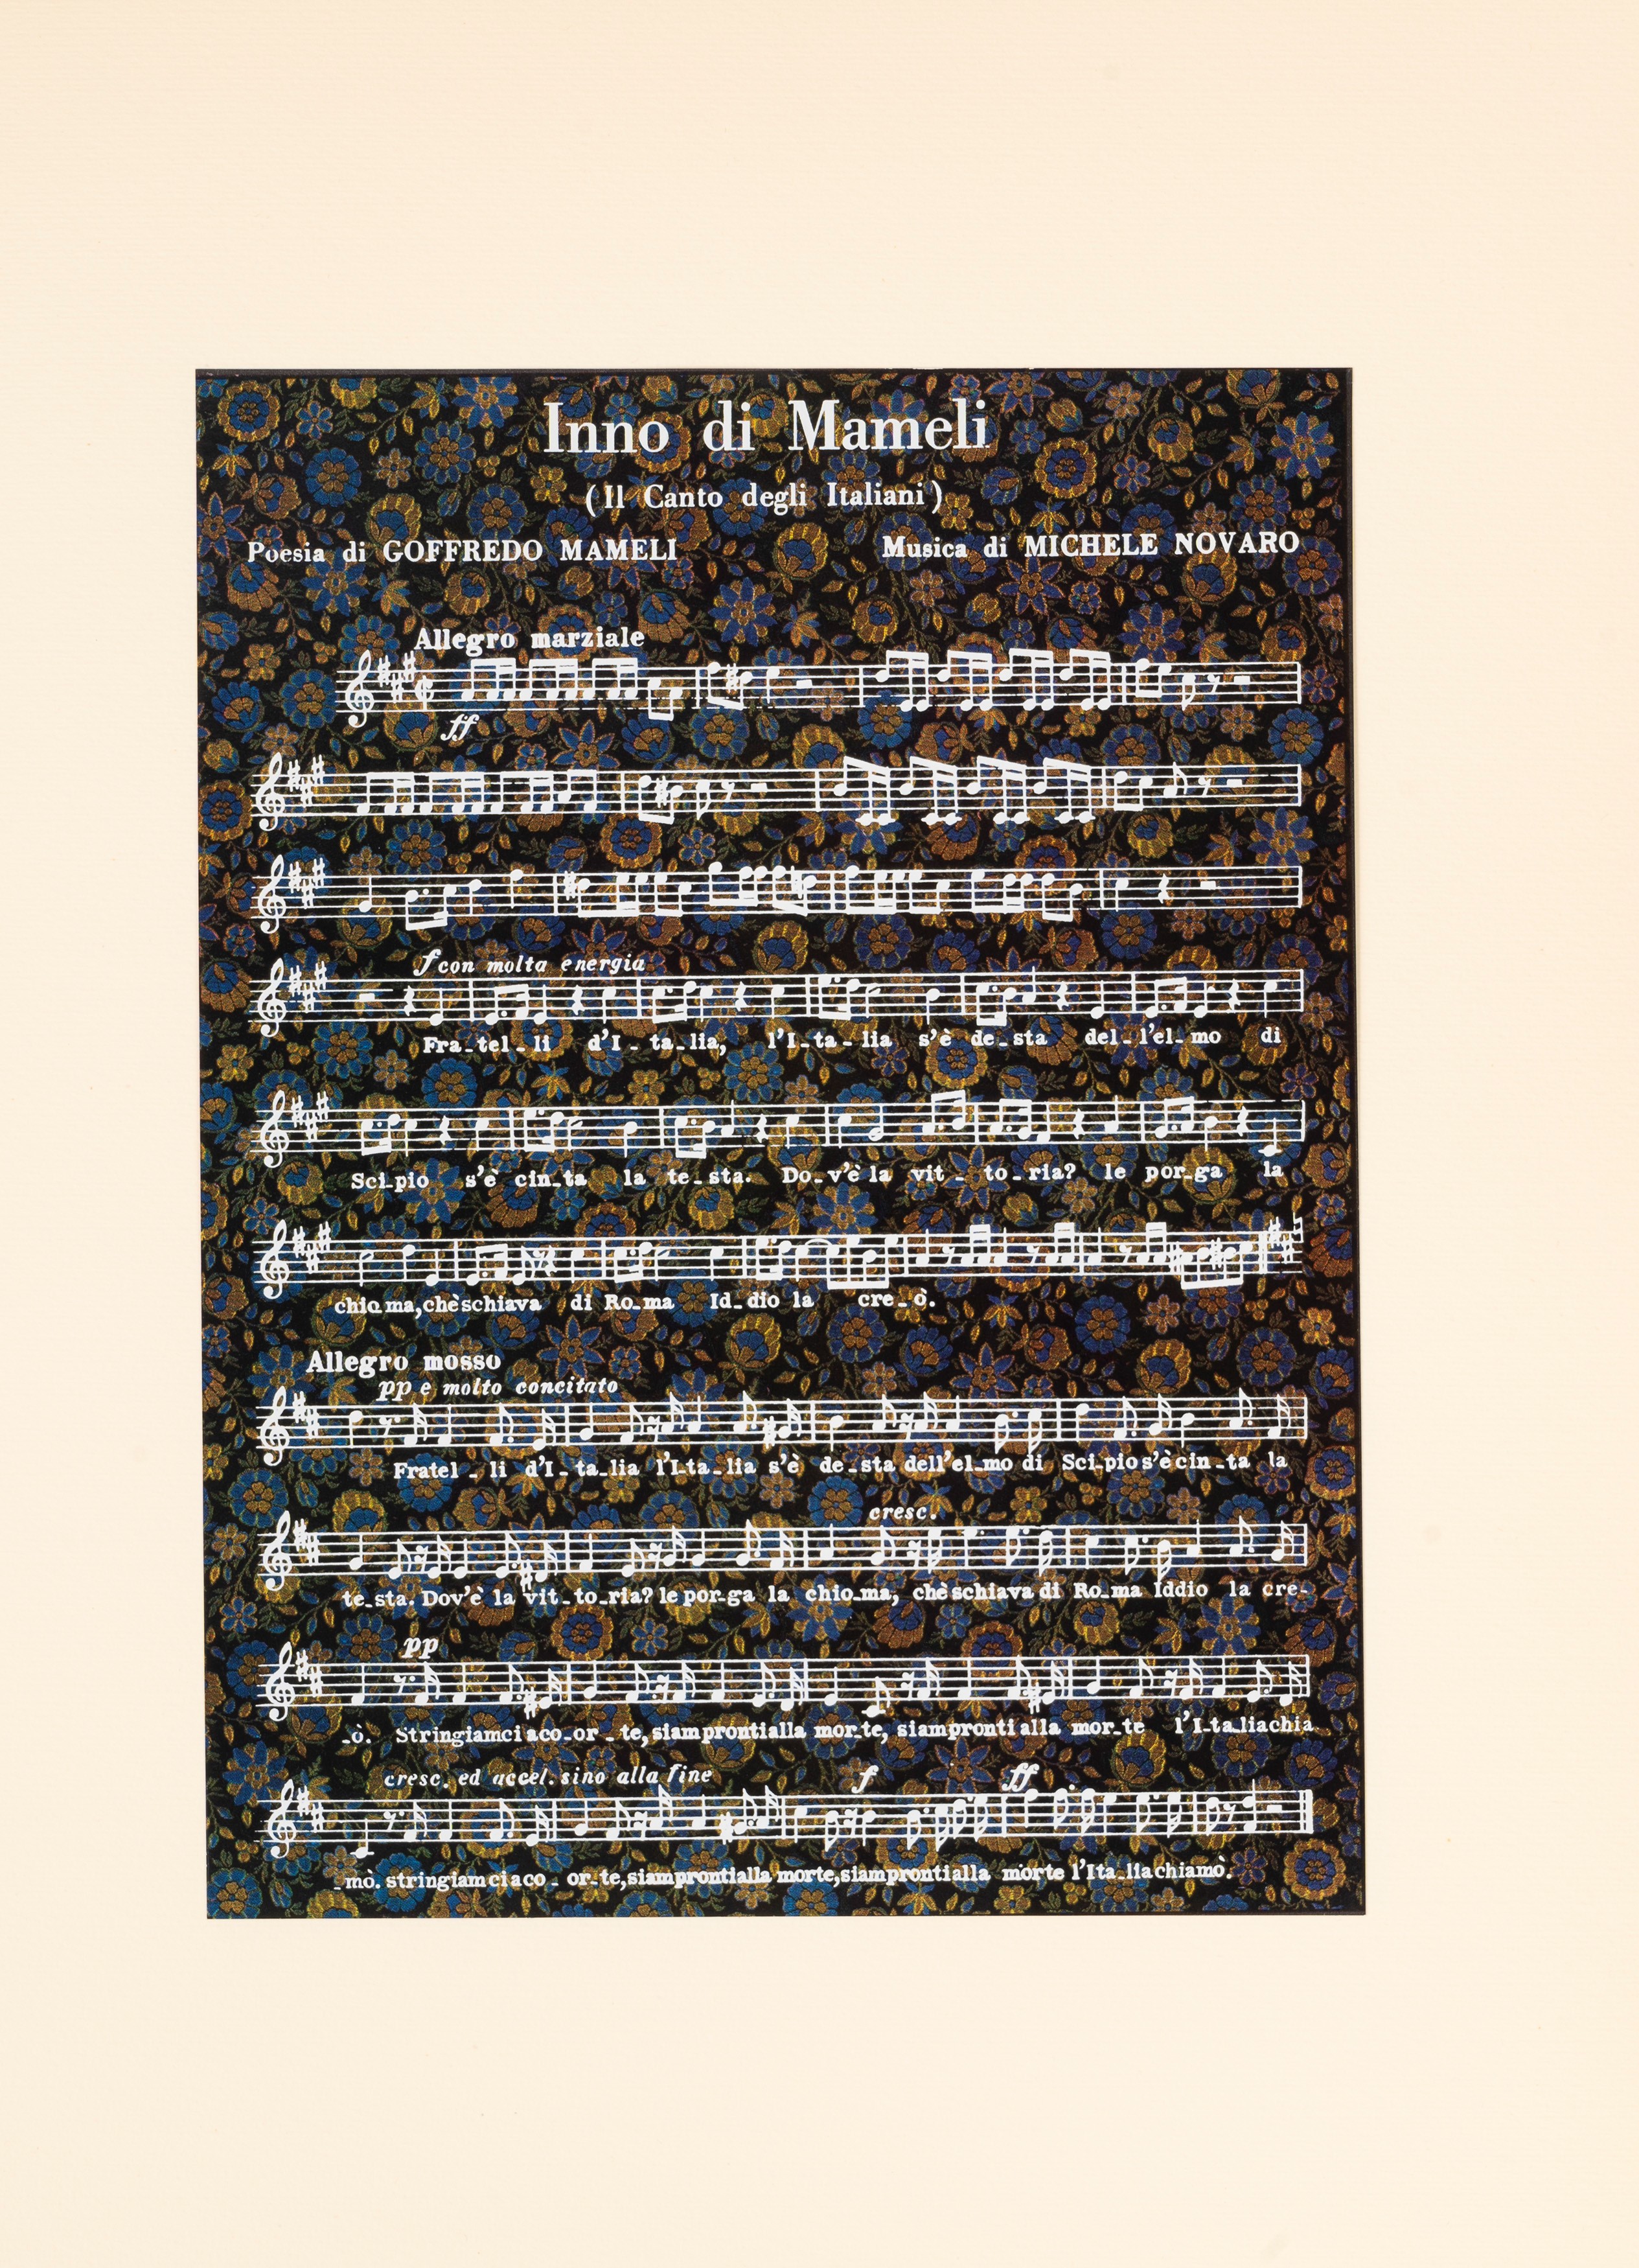 Inno di Mameli
(Il Canto degli Italiani)
Poesia di GOFFREDO MAMELI
Musica di MICHELE NOVARO
Allegro marziale
ff
f con molta energia
Fra-tel-li d'I-ta-lia, l'I-ta-lia s'è de-sta del-l'el-mo di
Sci-pio s'è cin-ta la te-sta. Do-v'è la vit-to-ria? le por-ga la
chio-ma, chè schiava di Ro-ma Id-dio la cre-ò.
Allegro mosso
pp e molto concitato
Fratel-li d'I-ta-lia l'I-ta-lia s'è de-sta dell'el-mo di Sci-pio s'è cin-ta la
cresc.
te-sta. Dov'è la vit-to-ria? le por-ga la chio-ma, chè schiava di Ro-ma Iddio la cre-
pp
-ò. Stringiamci a co-or-te, siam pronti alla mor-te, siam pronti alla mor-te l'I-ta-lia chia
cresc. ed accel. sino alla fine f ff
-mò. stringiamci a co-or-te, siam pronti alla morte, siam pronti alla morte l'Ita-lia chiamò.